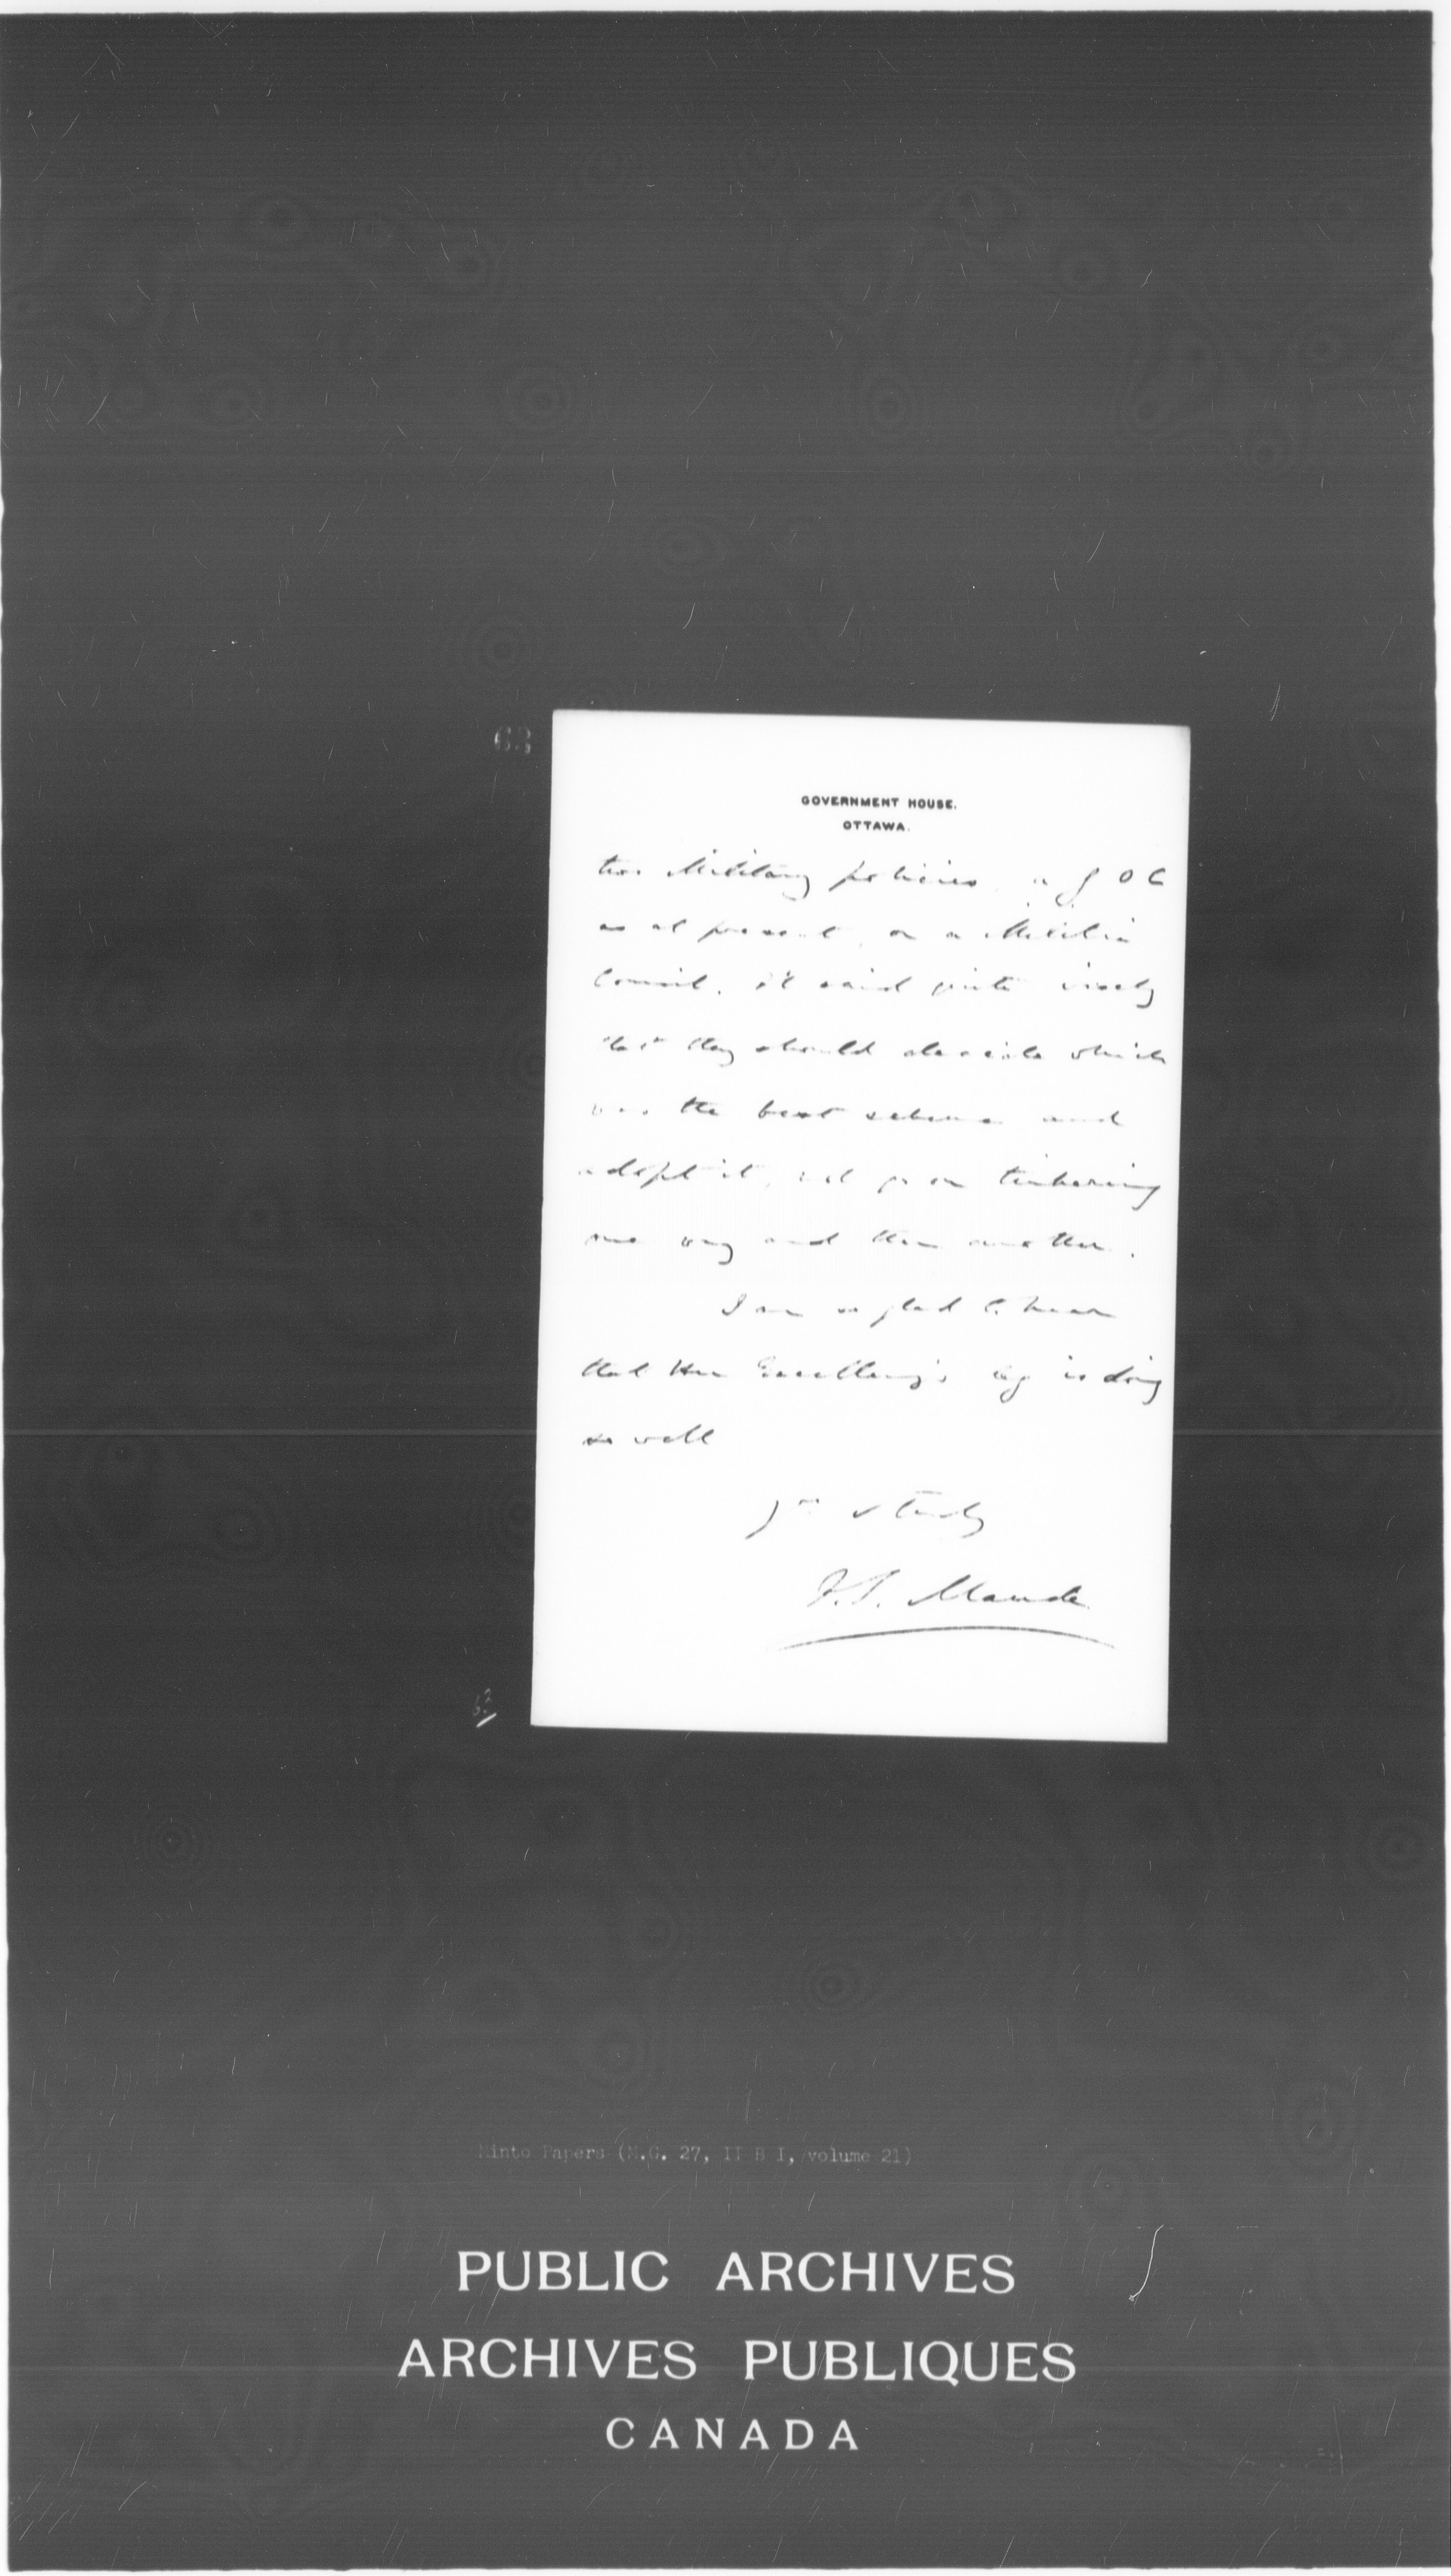 63
GOVERNMENT HOUSE.
OTTAWA.
two Military policies, a G O C
as at present, or a Militia
Council. It said quite wisely
that they should decide which
was the best scheme and
adopt it, and go on tinkering
one way and then another.
I am so glad to hear
that Her Excellency's leg is doing
so well
Yrs
F.S. Maude
63
Minto Papers (M.G. 27, II B I, volume 21)
PUBLIC ARCHIVES
ARCHIVES PUBLIQUES
CANADA